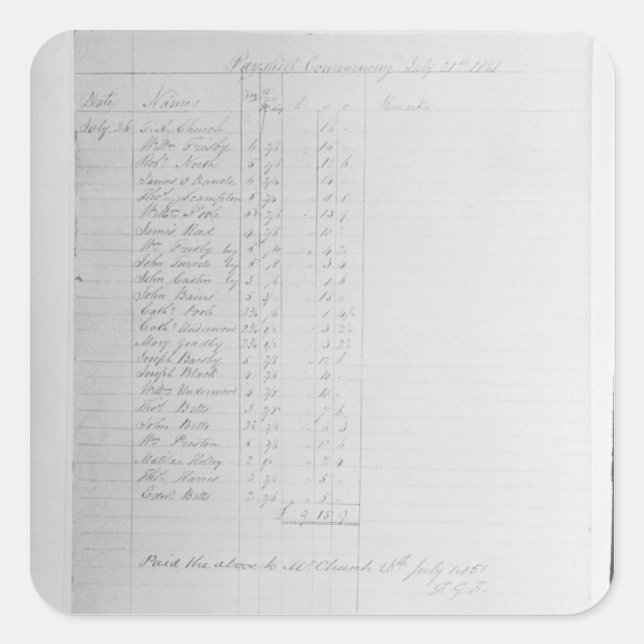 Paysheet Commencing July 21st 1851
Date Names Days £ s d Remarks
July 26 G. A. Church 15 "
Willm Fresby 6 2/6 " 15 "
Robt. North 5 2/6 " 12 6
James O 4 " 14 "
Thos. Scampton 5 " 11 8
Willm Poole 2/6 " 13 9
James Reed 4 2/6 " 10 "
Wm Fresby boy 5 /10 " 4 2
John boy 5 /8 " 3 4
John Caston boy 3 /6 " 1 6
John Bains 5 3/- " 15 "
Cathe. Poole 2¾ /6 " 1 4½
Cathe. Underwood 2¾ 1/2 " 3 2½
Mary Goadby 2¾ 1/2 " 3 2½
Joseph Barsby 5 2/6 " 12 6
Joseph Black 4 2/6 " 10 "
Willm Underwood 4 2/6 " 10 "
Thos. Betts 3 2/6 " 7 6
John Betts 2½ 2/6 " 6 3
Wm Preston 5 2/6 " 12 6
Matilda 2 " 2 4
Thos. Harris 2 2/6 " 5 "
Edwd. Betts 2 2/6 " 5 "
£ 9 15 9
Paid the above to Mr Church 26th July 1851